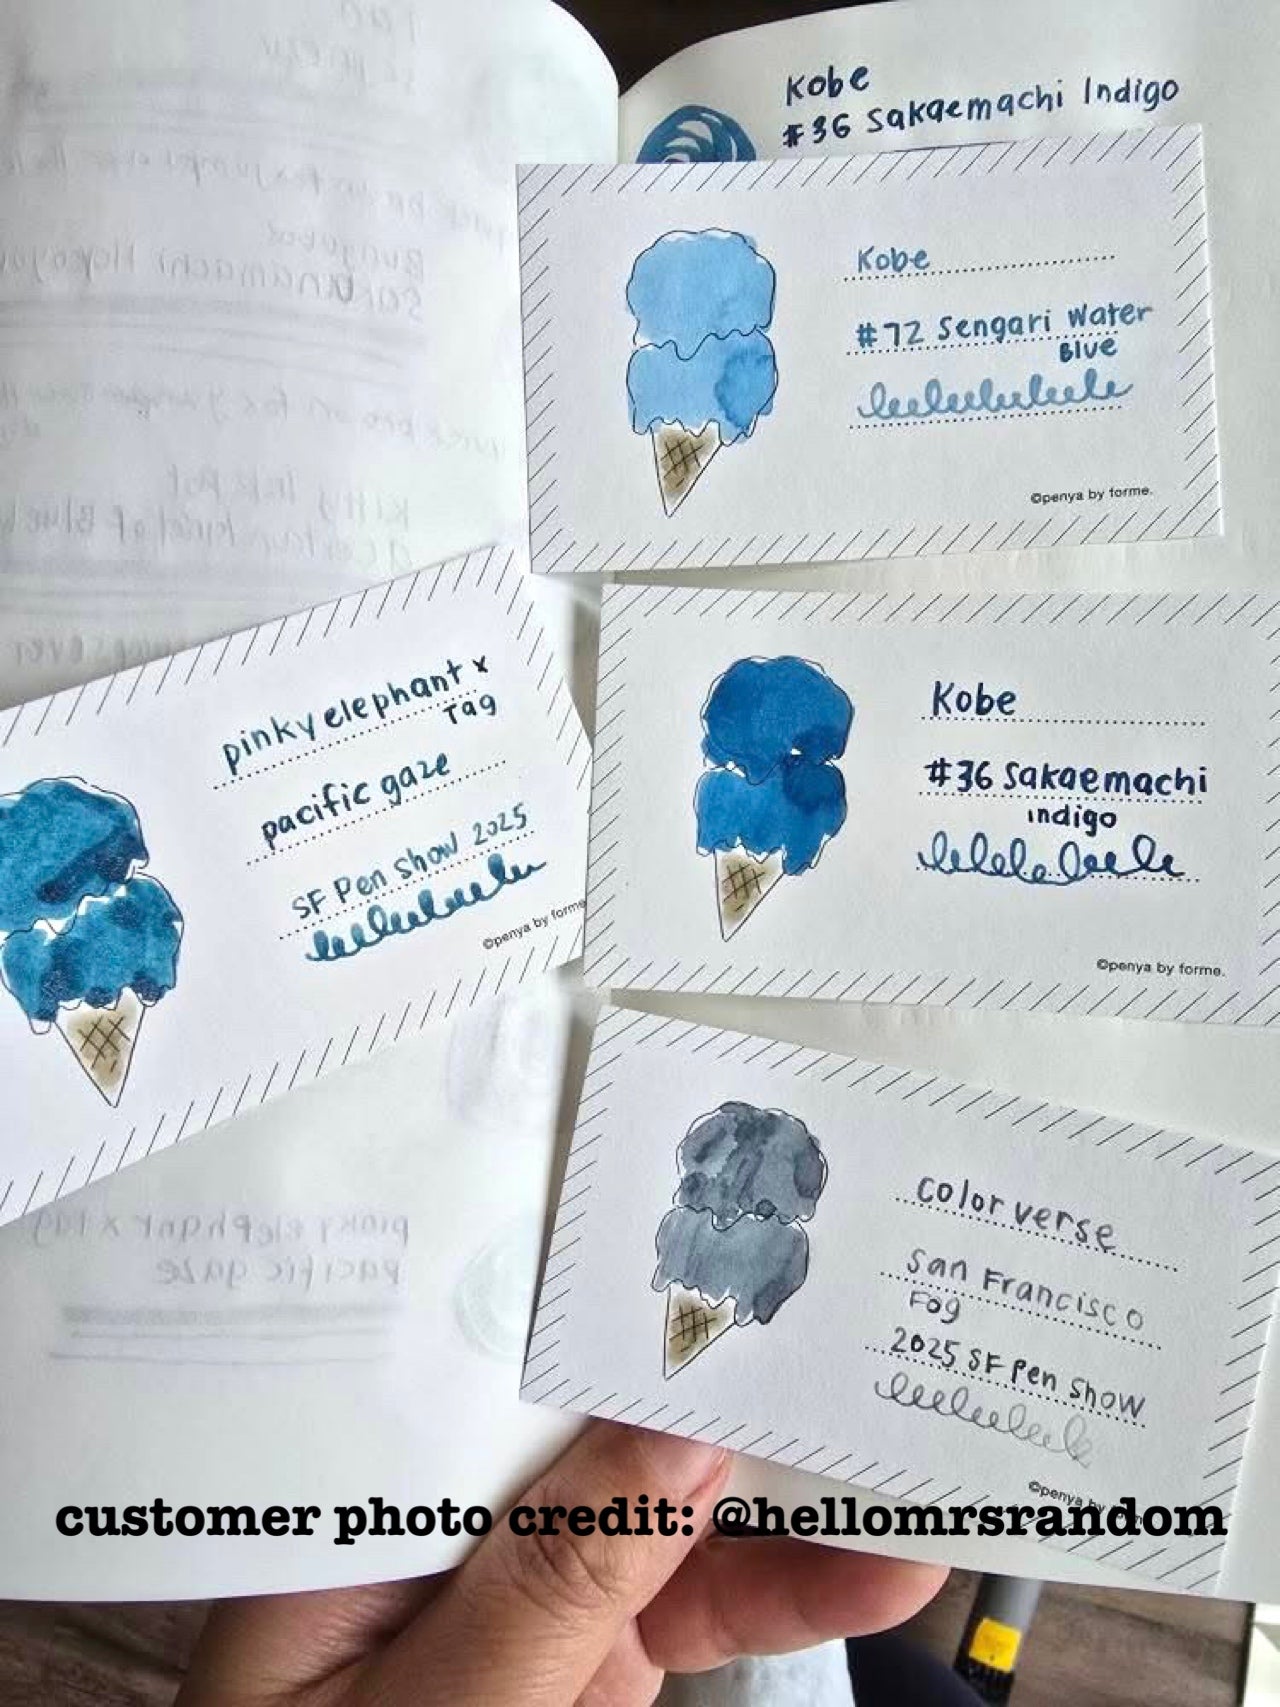 Kobe
#36 Sakaemachi Indigo
Kobe
#72 Sengari Water
Blue
©penya by forme.
pinky elephant x
Tag
pacific gaze
SF Pen Show 2025
©penya by forme
Kobe
#36 Sakaemachi
indigo
©penya by forme.
colorverse
San Francisco
Fog
2025 SF Pen Show
©penya by
pinky elephant x tag
pacific gaze
customer photo credit: @hellomrsrandom